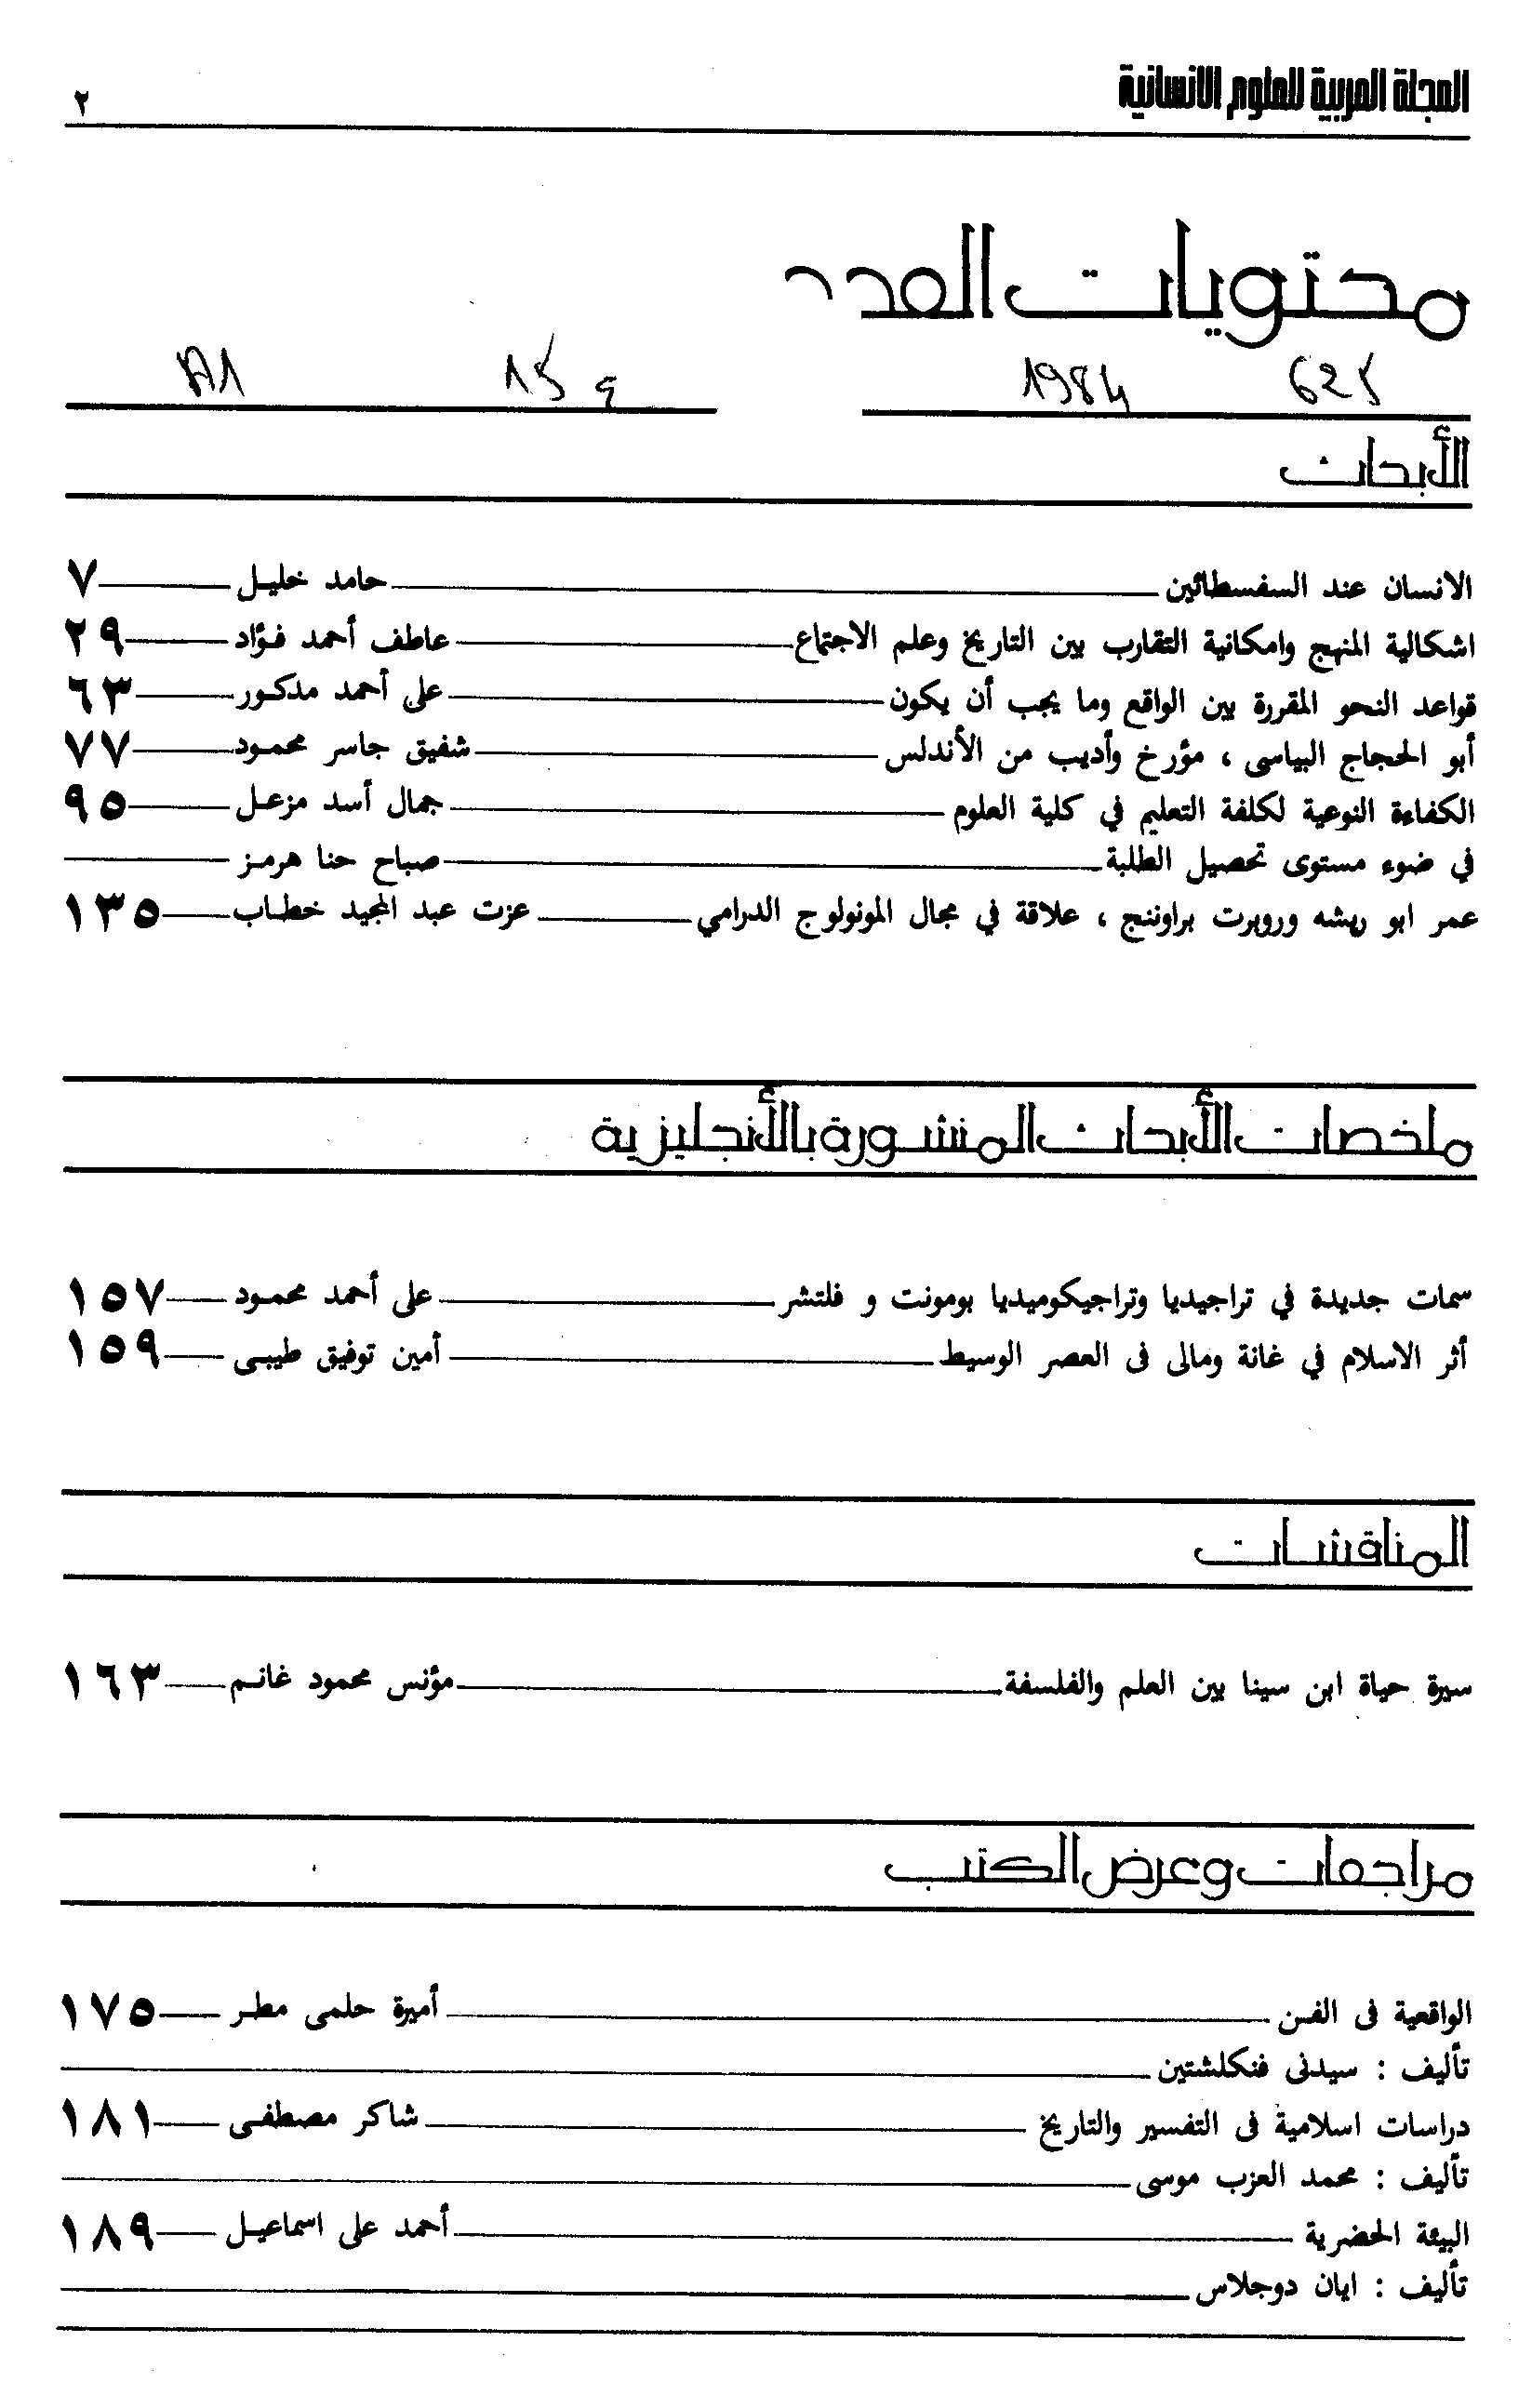 المجلة العربية للعلوم الانسانية
٢
محتويات العدد
1984
الأبحاث
الانسان عند السفسطائين حامد خليل ٧
اشكالية المنهج وامكانية التقارب بين التاريخ وعلم الاجتماع عاطف أحمد فؤاد ٢٩
قواعد النحو المقررة بين الواقع وما يجب أن يكون على أحمد مدكور ٦٣
أبو الحجاج البياسى ، مؤرخ وأديب من الأندلس شفيق جاسر محمود ٧٧
الكفاءة النوعية لكلفة التعليم في كلية العلوم جمال أسد مزعل ٩٥
في ضوء مستوى تحصيل الطلبة صباح حنا هرمز
عمر ابو ريشه وروبرت براوننج ، علاقة في مجال المونولوج الدرامي عزت عبد المجيد خطاب ١٣٥
ملخصات الأبحاث المنشورة بالأنجليزية
سمات جديدة في تراجيديا وتراجيكوميديا بومونت و فلتشر على أحمد محمود ١٥٧
أثر الاسلام في غانة ومالى فى العصر الوسيط أمين توفيق طيبى ١٥٩
المناقشات
سيرة حياة ابن سينا بين العلم والفلسفة مؤنس محمود غانم ١٦٣
مراجعات وعرض الكتب
الواقعية فى الفن أميرة حلمى مطر ١٧٥
تأليف : سيدنى فنكلشتين
دراسات اسلامية فى التفسير والتاريخ شاكر مصطفى ١٨١
تأليف : محمد العزب موسى
البيئة الحضرية أحمد على اسماعيل ١٨٩
تأليف : ايان دوجلاس